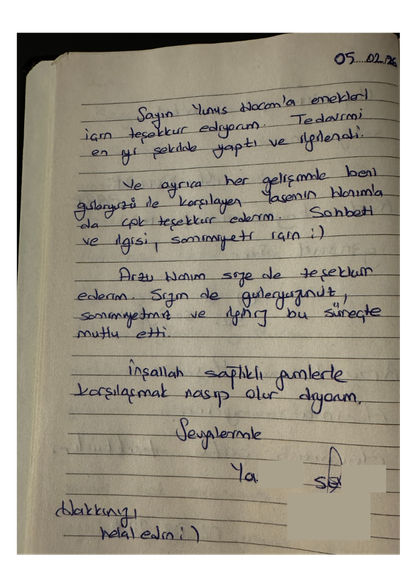 05.02.26
Sayın Yunus Hocam'a emekleri
için teşekkür ediyorum. Tedavimi
en iyi şekilde yaptı ve ilgilendi.
Ve ayrıca her gelişimde beni
güleryüzü ile karşılayan Yasemin Hanıma
da çok teşekkür ederim. Sohbeti
ve ilgisi, samimiyeti için :)
Arzu Hanım size de teşekkür
ederim. Sizin de güleryüzünüz,
samimiyetiniz ve ilginiz bu süreçte
mutlu etti.
İnşallah sağlıklı günlerle
karşılaşmak nasip olur diyorum.
Sevgilerimle
Ya
Hakkınızı
helal edin :)